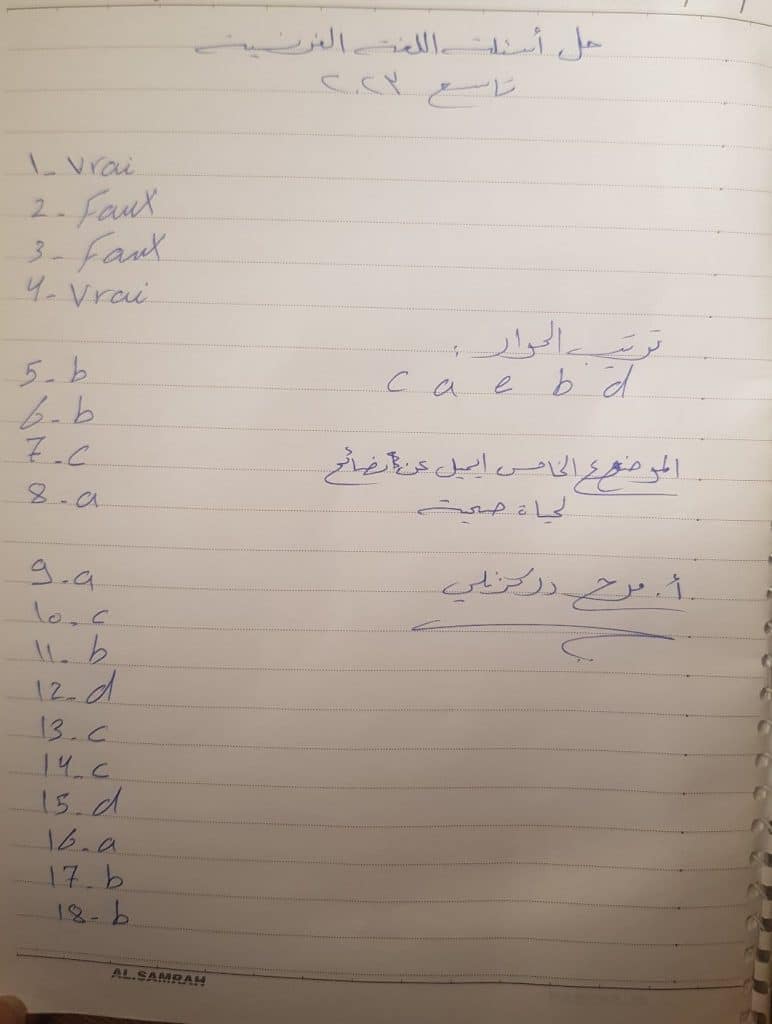 حل أسئلة اللغة الفرنسية
تاسع ٢٠٢٣
1- Vrai
2- Faux
3- Faux
4- Vrai
ترتيب الحوار :
c a e b d
5- b
6- b
7- c
8- a
الموضوع الخامس ايميل عن نصائح
لحياة صحية
9- a
10- c
11- b
12- d
13- c
14- c
15- d
16- a
17- b
18- b
أ. مرح
AL.SAMRAH